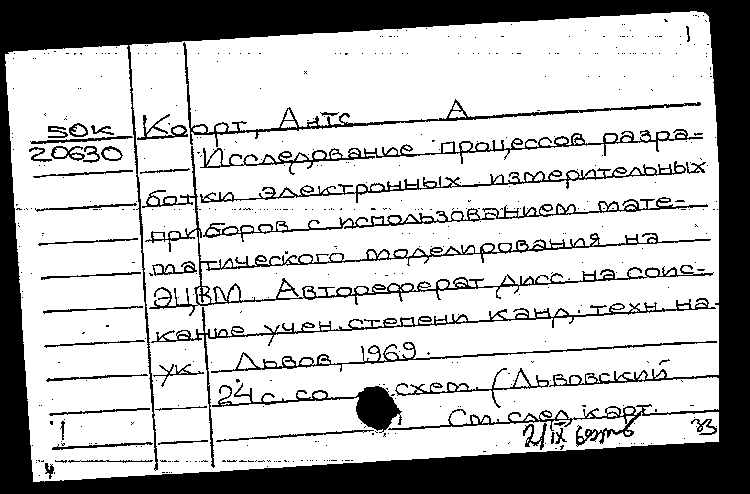 1
50к Коорт, Антс А
20630 Исследование процессов разра=
ботки электронных измерительных
приборов с использованием мате=
матического моделирования на
ЭЦВМ. Автореферат дисс. на соис=
кание учен. степени канд. техн. на-
ук. Львов, 1969.
24 с. со схем. (Львовский
1 См. след. карт.
2/IX 33
4